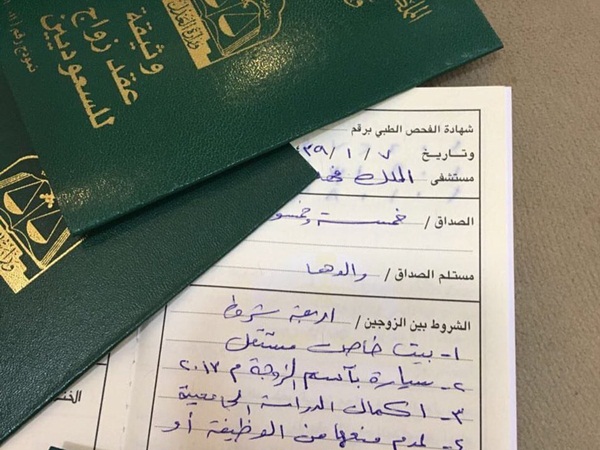 وثيقة
عقد زواج
للسعوديين
وزارة العدل
شهادة الفحص الطبي برقم
وتاريخ ٧ / ١ / ٣٩
مستشفى الملك فهد
الصداق / خمسة
مستلم الصداق / والدها
الشروط بين الزوجين / اربعة شروط
١- بيت خاص مستقل
٢- سيارة بآسم الزوجة م ٢٠١٧
٣- اكمال الدراسة الجامعية
٤- عدم منعها من الوظيفة أو